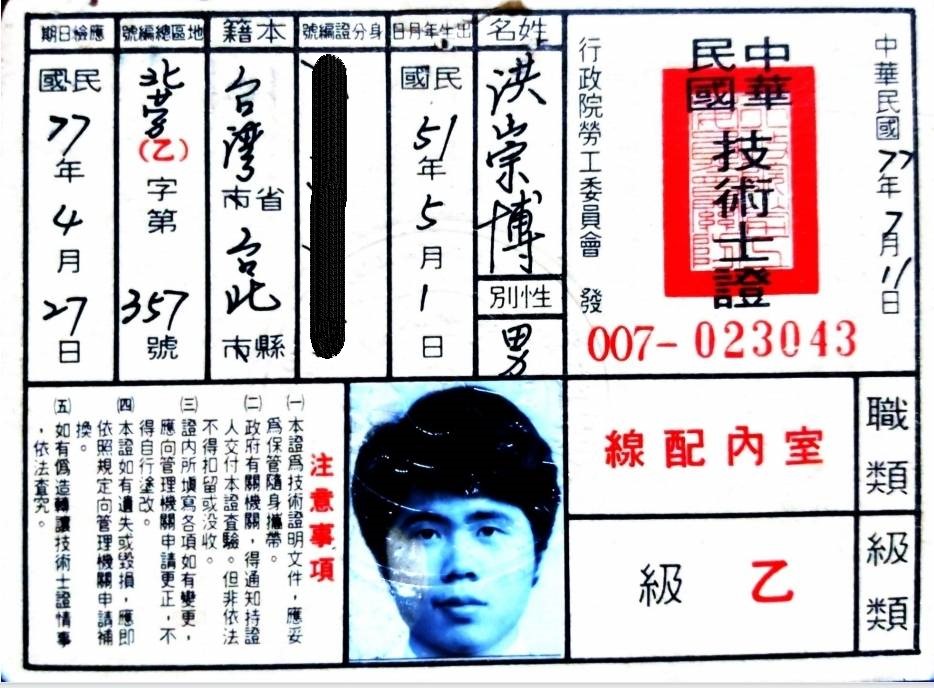 中華民國77年7月11日
中華
民國
技術士證
行政院勞工委員會 發
007-023043
姓名
洪崇博
性別
男
出生年月日
民國51年5月1日
身分證編號
本籍
台灣省市台北縣市
地區總編號
北勞(乙)字第357號
應檢日期
民國77年4月27日
職類
室內配線
級類
乙級
注意事項
㈠本證爲技術證明文件，應妥
爲保管隨身攜帶。
㈡政府有關機關，得通知持證
人交付本證査驗。但非依法
不得扣留或没收。
㈢證內所填寫各項如有變更，
應向管理機關申請更正，不
得自行塗改。
㈣本證如有遺失或毀損，應即
依照規定向管理機關申請補
換。
㈤如有僞造轉讓技術士證情事
，依法査究。